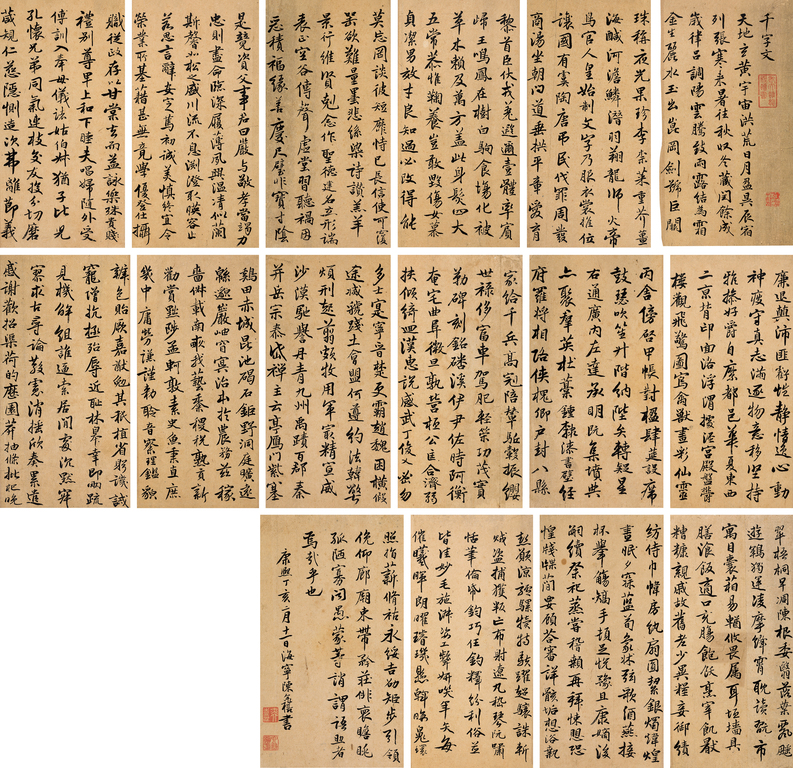 千字文
天地玄黃宇宙洪荒日月盈昃辰宿
列張寒來暑往秋收冬藏閏餘成
歲律呂調陽雲騰致雨露結為霜
金生麗水玉出崑岡劍號巨闕
珠稱夜光果珍李柰菜重芥薑
海鹹河淡鱗潛羽翔龍師火帝
鳥官人皇始制文字乃服衣裳推位
讓國有虞陶唐弔民伐罪周發
商湯坐朝問道垂拱平章愛育
黎首臣伏戎羌遐邇壹體率賓
歸王鳴鳳在樹白駒食場化被
草木賴及萬方蓋此身髮四大
五常恭惟鞠養豈敢毀傷女慕
貞潔男效才良知過必改得能
莫忘罔談彼短靡恃己長信使可覆
器欲難量墨悲絲染詩讚羔羊
景行維賢剋念作聖德建名立形端
表正空谷傳聲虛堂習聽禍因
惡積福緣善慶尺璧非寶寸陰
是競資父事君曰嚴與敬孝當竭力
忠則盡命臨深履薄夙興溫凊似蘭
斯馨如松之盛川流不息淵澄取映容止
若思言辭安定篤初誠美慎終宜令
榮業所基藉甚無竟學優登仕攝
職從政存以甘棠去而益詠樂殊貴賤
禮別尊卑上和下睦夫唱婦隨外受
傅訓入奉母儀諸姑伯叔猶子比兒
孔懷兄弟同氣連枝交友投分切磨
箴規仁慈隱惻造次弗離節義
廉退顛沛匪虧性靜情逸心動
神疲守真志滿逐物意移堅持
雅操好爵自縻都邑華夏東西
二京背邙面洛浮渭據涇宮殿盤鬱
樓觀飛驚圖寫禽獸畫彩仙靈
丙舍傍啓甲帳對楹肆筵設席
鼓瑟吹笙升階納陛弁轉疑星
右通廣內左達承明既集墳典
亦聚群英杜稾鍾隸漆書壁經
府羅將相路俠槐卿戶封八縣
家給千兵高冠陪輦驅轂振纓
世祿侈富車駕肥輕策功茂實
勒碑刻銘磻溪伊尹佐時阿衡
奄宅曲阜微旦孰營桓公匡合濟弱
扶傾綺迴漢惠說感武丁俊乂密勿
多士寔寧晉楚更霸趙魏困橫假
途滅虢踐土會盟何遵約法韓弊
煩刑起翦頗牧用軍最精宣威
沙漠馳譽丹青九州禹蹟百郡秦
并岳宗泰岱禪主云亭雁門紫塞
鷄田赤城昆池碣石鉅野洞庭曠遠
綿邈巖岫杳冥治本於農務茲稼
穡俶載南畝我藝黍稷稅熟貢新
勸賞黜陟孟軻敦素史魚秉直庶
幾中庸勞謙謹勅聆音察理鑑貌
辨色貽厥嘉猷勉其祗植省躬譏誡
寵增抗極殆辱近恥林皋幸即兩疏
見機解組誰逼索居閒處沉默寂
寥求古尋論散慮逍遙欣奏累遣
慼謝歡招渠荷的歷園莽抽條枇杷晚
翠梧桐早凋陳根委翳落葉飄颻
遊鵾獨運淩摩絳霄耽讀翫市
寓目囊箱易輶攸畏屬耳垣墻具
膳飡飯適口充腸飽飫烹宰飢厭
糟糠親戚故舊老少異糧妾御績
紡侍巾帷房紈扇圓絜銀燭煒煌
晝眠夕寐藍筍象牀弦歌酒燕接
杯舉觴矯手頓足悅豫且康嫡後
嗣續祭祀蒸嘗稽顙再拜悚懼恐
惶牋牒簡要顧答審詳骸垢想浴執
熱願涼驢騾犢特駭躍超驤誅斬
賊盜捕獲叛亡布射遼丸嵇琴阮嘯
恬筆倫紙鈞巧任釣釋紛利俗並
皆佳妙毛施淑姿工顰妍笑年矢每
催曦暉朗曜璇璣懸斡晦魄環
照指薪修祜永綏吉劭矩步引領
俯仰廊廟束帶矜莊徘徊瞻眺
孤陋寡聞愚蒙等誚謂語助者
焉哉乎也
康熙丁亥二月十二日海寧陳奕禧書